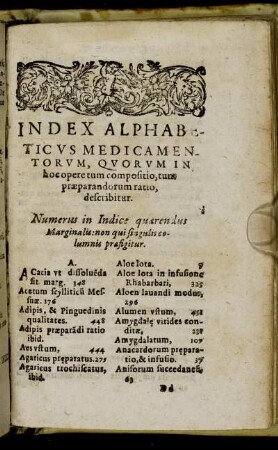 INDEX ALPHABE-
TICVS MEDICAMEN-
TORVM, QVORVM IN
hoc opere tum compositio, tum
præparandorum ratio,
describitur.
Numerus in Indice quærendus
Marginalis: non qui singulis co-
lumnis præfigitur.
A.
ACacia vt dissoluēda
sit marg. 348
Acetum scylliticũ Mes-
suæ. 176
Adipis, & Pinguedinis
qualitates. 448
Adipis præparādi ratio
ibid.
Aes vstum, 444
Agaricus præparatus. 271
Agaricus trochiscatus,
ibid.
Aloe lota.
Aloe lota in infusione
Rhabarbari, 325
Aloen lauandi modus,
296
Alumen vstum, 458
Amygdalę virides con-
ditæ, 238
Amygdalatum, 107
Anacardorum prępara-
tio, & infusio. 37
Anisorum succedanea,
63
Dd